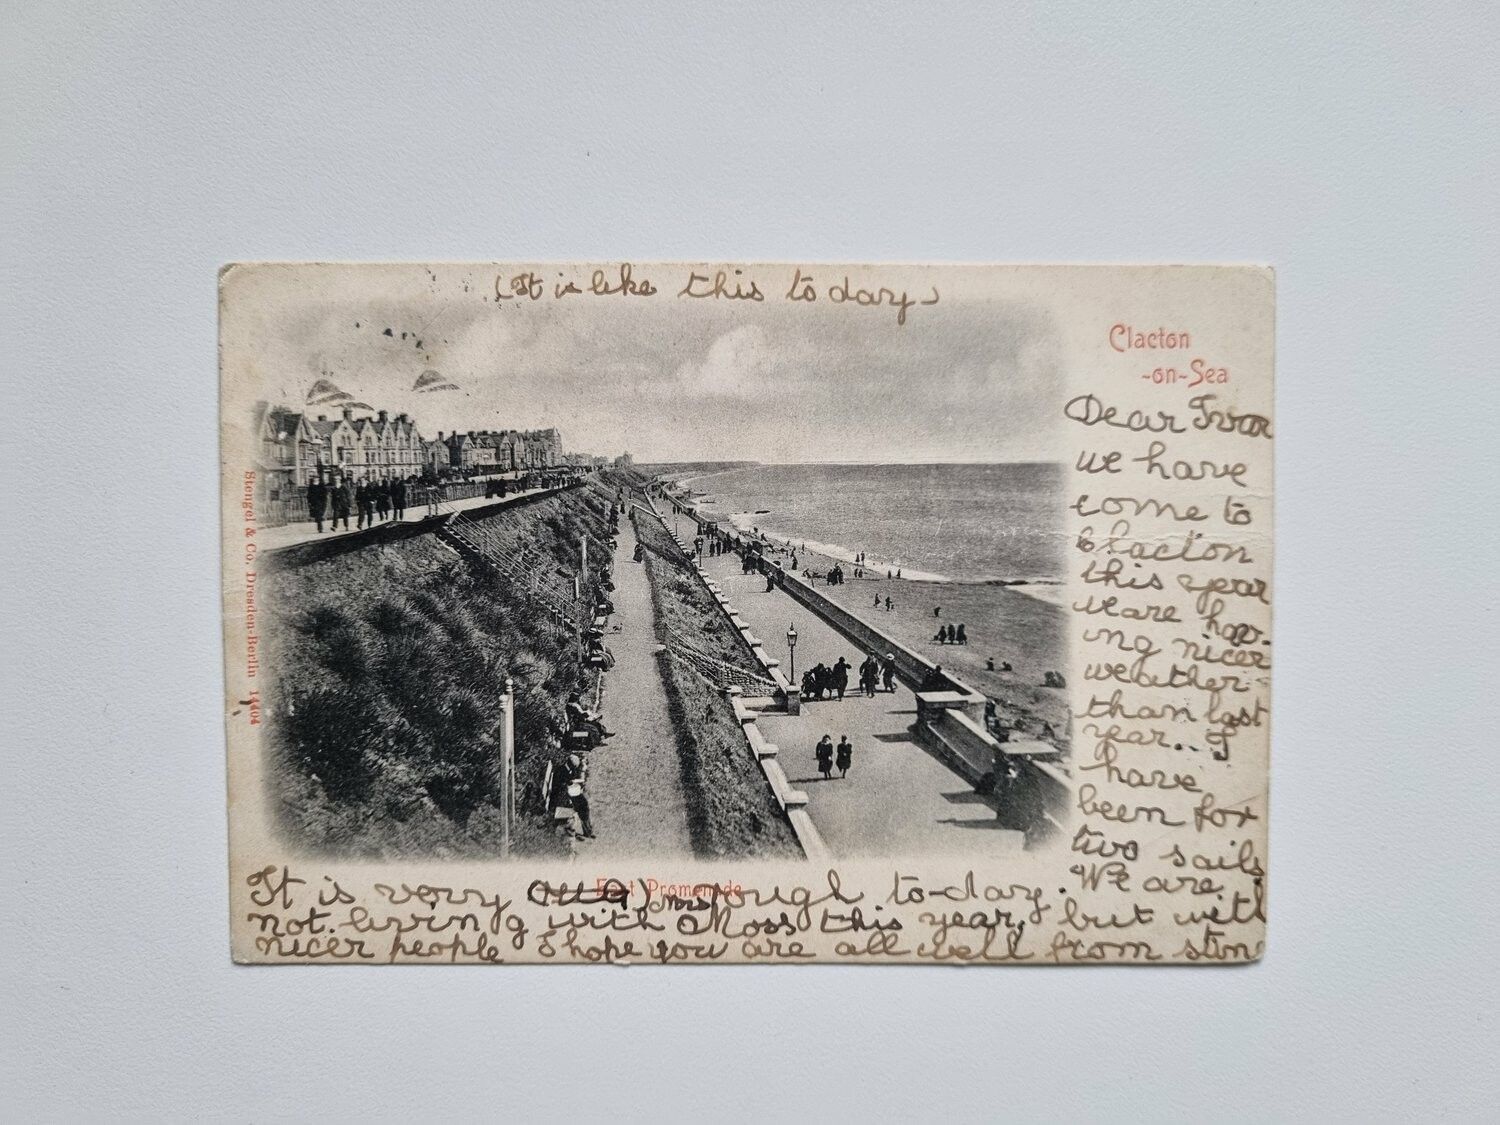 (It is like this to day)
Clacton
-on-Sea
Dear Ivor
we have
come to
Clacton
this year
we are hav-
ing nicer
weather
than last
year. I
have
been for
two sails
We are
It is very rough to-day.
not living with Mrs Moss this year, but with
nicer people I hope you are all well from
East Promenade
Stengel & Co., Dresden-Berlin 14404